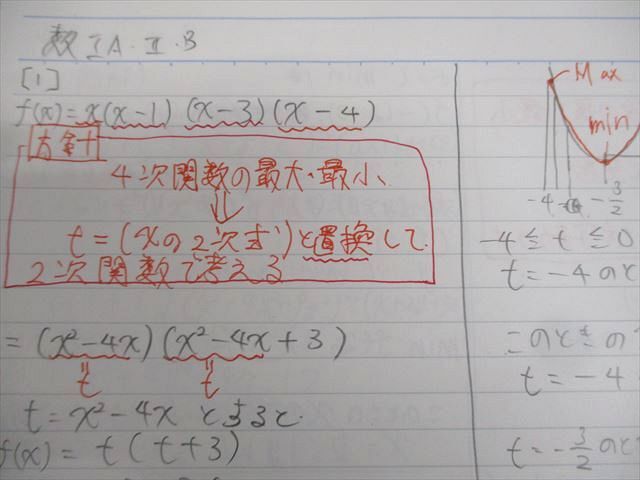 数ⅠA・Ⅱ・B
[1]
f(x) = x(x-1) (x-3)(x-4)
方針
4次関数の最大・最小
⇓
t=(xの2次式)と置換して
2次関数で考える
= (x²-4x)(x²-4x+3)
t t
t = x²-4x とすると
f(x) = t(t+3)
Max
min
-4 -3/2
-4 ≦ t ≦ 0
t = -4 のと
このときの
t = -4
t = -3/2 のと